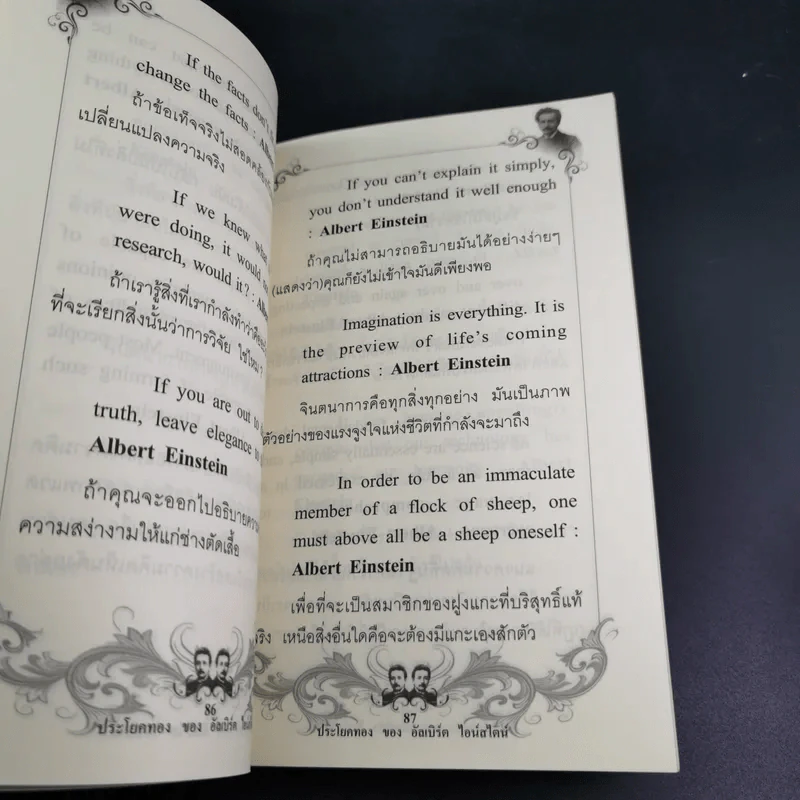 If the facts don't
change the facts :
ถ้าข้อเท็จจริงไม่สอดคล้อง
เปลี่ยนแปลงความจริง
If we knew what
were doing, it would
research, would it? :
ถ้าเรารู้สิ่งที่เรากำลังทำว่าคือ
ที่จะเรียกสิ่งนั้นว่าการวิจัย ใช่ไหม ?
If you are out to
truth, leave elegance to
Albert Einstein
ถ้าคุณจะออกไปอธิบายความ
ความสง่างามให้แก่ช่างตัดเสื้อ
86
ประโยคทอง ของ อัลเบิร์ต
If you can't explain it simply,
you don't understand it well enough
: Albert Einstein
ถ้าคุณไม่สามารถอธิบายมันได้อย่างง่ายๆ
(แสดงว่า)คุณก็ยังไม่เข้าใจมันดีเพียงพอ
Imagination is everything. It is
the preview of life's coming
attractions : Albert Einstein
จินตนาการคือทุกสิ่งทุกอย่าง มันเป็นภาพ
ตัวอย่างของแรงจูงใจแห่งชีวิตที่กำลังจะมาถึง
In order to be an immaculate
member of a flock of sheep, one
must above all be a sheep oneself :
Albert Einstein
เพื่อที่จะเป็นสมาชิกของฝูงแกะที่บริสุทธิ์แท้
จริง เหนือสิ่งอื่นใดคือจะต้องมีแกะเองสักตัว
87
ประโยคทอง ของ อัลเบิร์ต ไอน์สไตน์